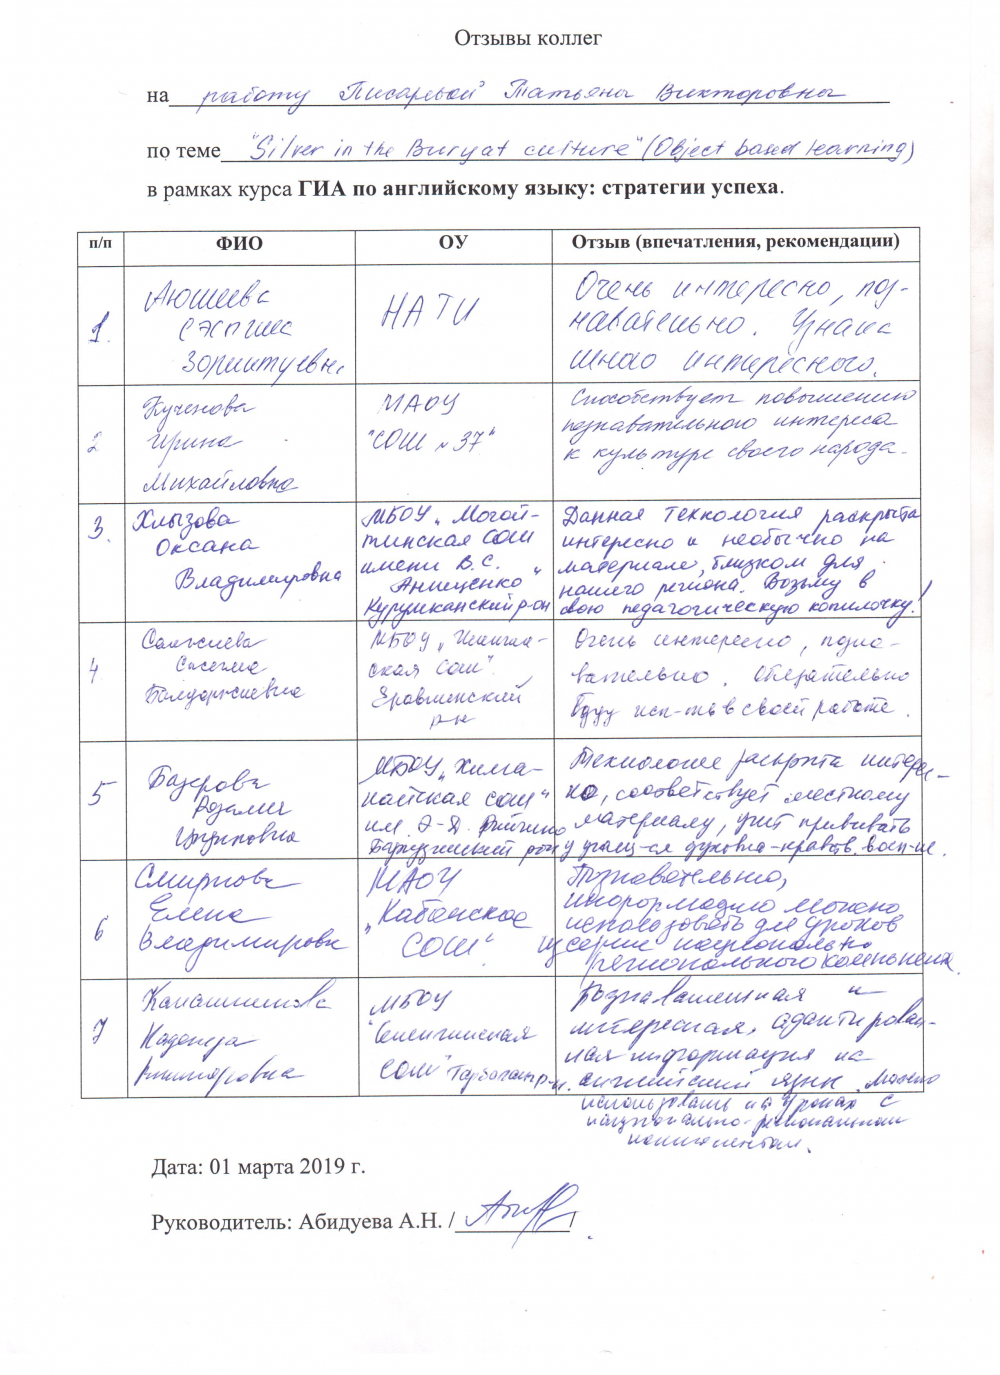 Отзывы коллег
на работу Писаревой Татьяны Викторовны
по теме "Silver in the Buryat culture" (Object based learning)
в рамках курса ГИА по английскому языку: стратегии успеха.
п/п ФИО ОУ Отзыв (впечатления, рекомендации)
1. Аюшеева
Сэсэгма
Зориктуевна
НАТИ
Очень интересно, поз-
навательно. Узнала
много интересного.
2 Кученова
Ирина
Михайловна
МАОУ
"СОШ №37"
Способствует повышению
познавательного интереса
к культуре своего народа.
3. Хлызова
Оксана
Владимировна
МБОУ „Могой-
тинская СОШ
имени В.С.
Анищенко"
Курумканский р-он
Данная технология раскрыта
интересно и необычно на
материале, близком для
нашего региона. Возьму в
свою педагогическую копилочку!
4
Сэсэгма
МБОУ
ская СОШ"
Еравнинский
р-н
Очень интересно, позна-
вательно. Обязательно
буду исп-ть в своей работе.
5 Базарова
МБОУ
СОШ"
им. Э-Д.
Баргузинский р-он
Технология раскрыта интерес-
но, соответствует местному
материалу, учит прививать
у учащ-ся духовно-нравств. восп-ие.
6 Смирнова
Елена
Владимировна
МАОУ
„Кабанская
СОШ"
Познавательно,
информацию можно
использовать для уроков
из серии национально
регионального компонента.
7
Надежда
Викторовна
МБОУ
"Селенгинская
СОШ" Тарбагат. р-н.
Познавательная и
интересная, адаптирован-
ная информация на
английский язык. Можно
использовать на уроках с
национально-региональным
компонентом.
Дата: 01 марта 2019 г.
Руководитель: Абидуева А.Н. / /